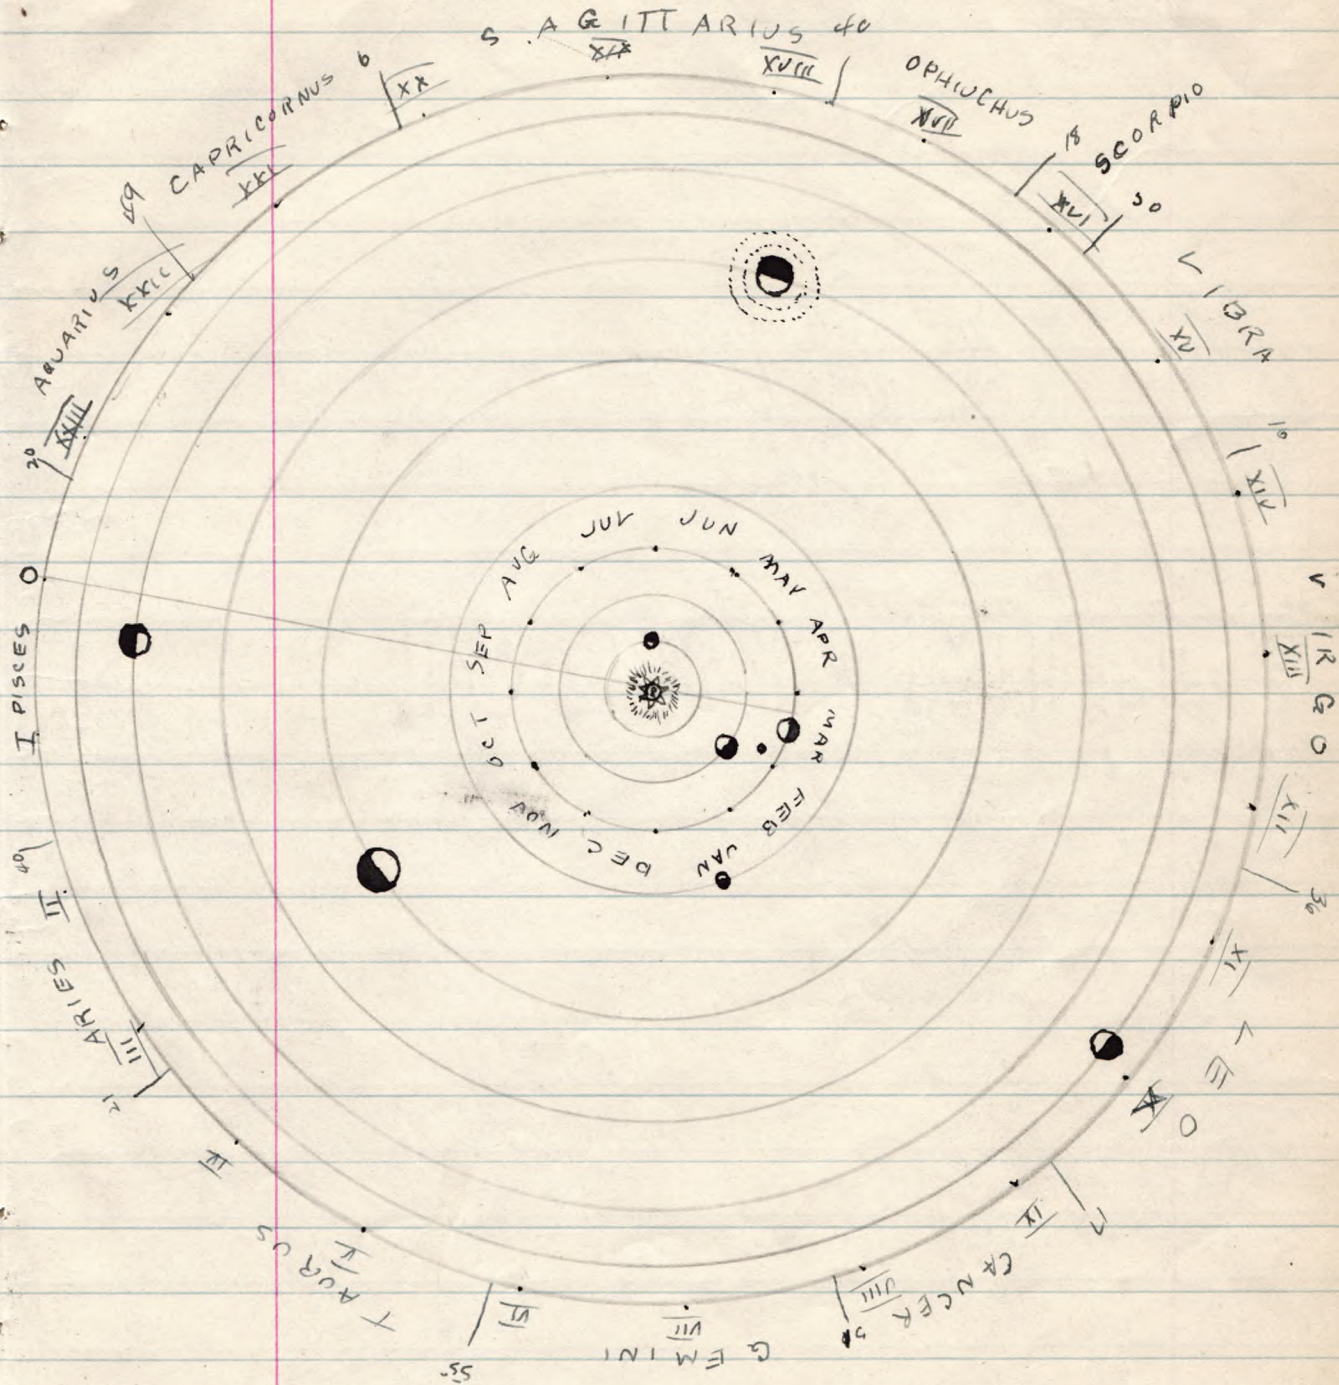 SAGITTARIUS 40
XIX
XVIII
OPHIUCHUS
XVII
18
SCORPIO
XVI
30
LIBRA
XV
10
XIV
VIRGO
XIII
XII
36
XI
LEO
X
7
IX
CANCER
VIII
GEMINI
VII
VI
55
TAURUS
V
IV
21
III
ARIES
II
40
I PISCES
O
20
XXIII
AQUARIUS
XXII
49
CAPRICORNUS
XXI
6
XX
JUN
MAY
APR
MAR
FEB
JAN
DEC
NOV
OCT
SEP
AUG
JUL